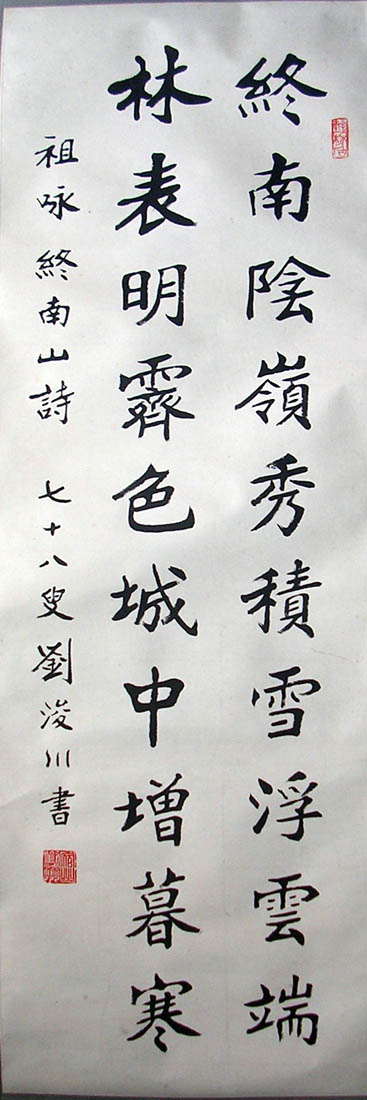 終南陰嶺秀積雪浮雲端
林表明霽色城中增暮寒
祖咏終南山詩 七十八叟劉浚川書